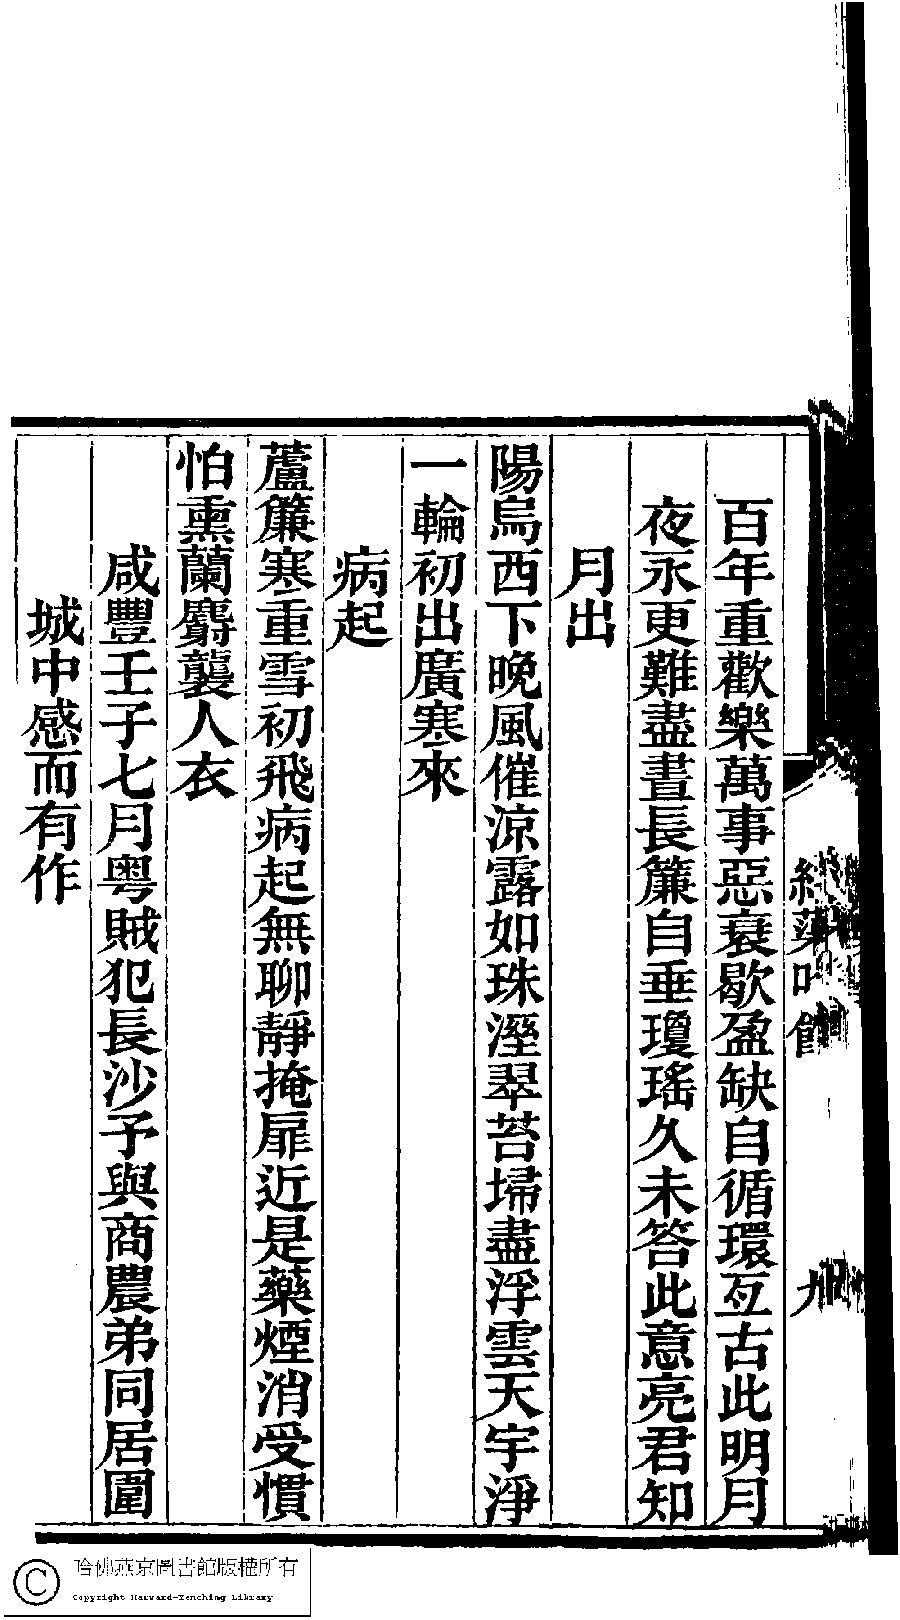 百年重歡樂萬事惡衰歇盈缺自循環亙古此明月
夜永更難盡晝長簾自垂瓊瑤久未答此意亮君知
月出
陽烏西下晚風催涼露如珠溼翠苔埽盡浮雲天宇淨
一輪初出廣寒來
病起
蘆簾寒重雪初飛病起無聊靜掩扉近是藥煙消受慣
怕熏蘭麝襲人衣
咸豐壬子七月粤賊犯長沙予與商農弟同居圍
城中感而有作
九
哈佛燕京圖書館版權所有
Copyright Harvard-Yenching Library